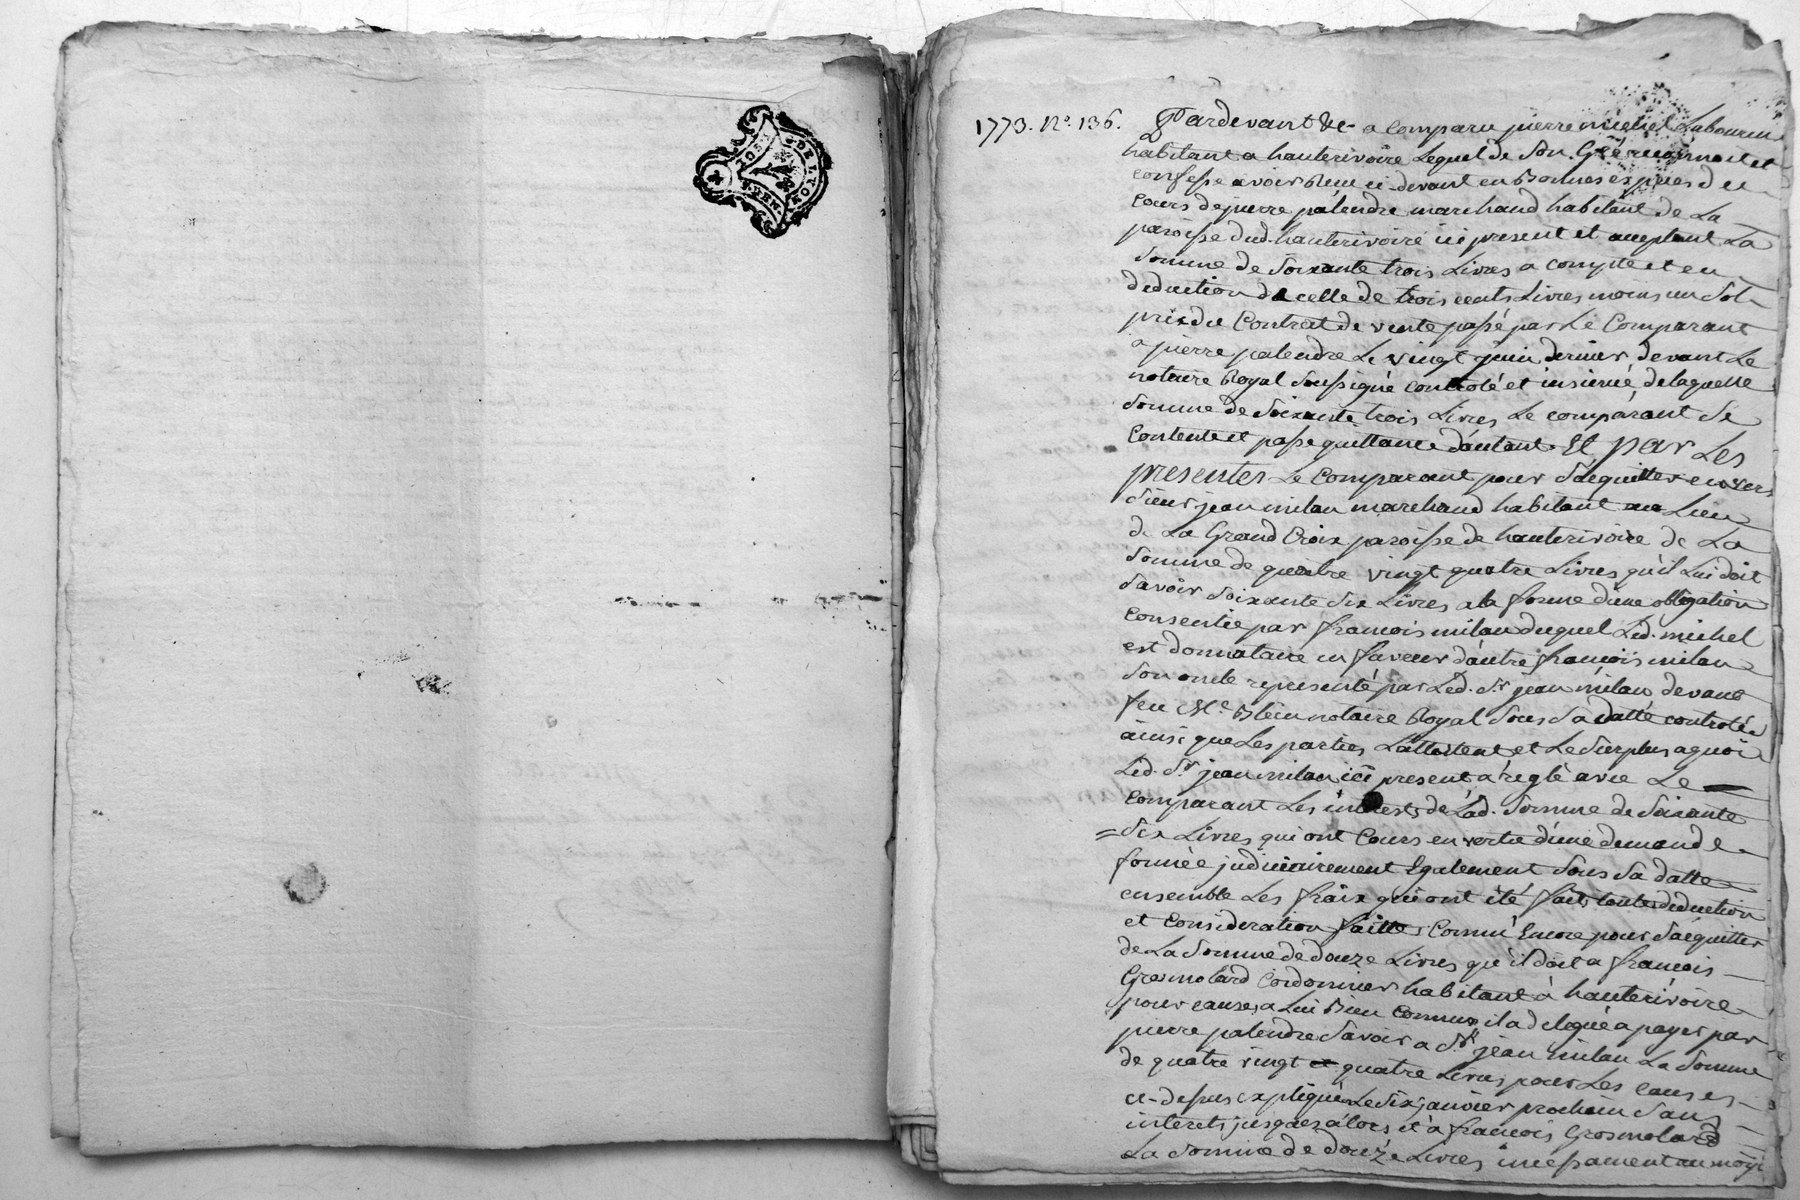 1773. N°. 136.
Pardevant &c a comparu pierre michel Laboureur
habitant a hauterivoire Lequel de Son Gré reconnoit et
confesse avoir Reçu ci-devant en Bonnes especes du
cours de pierre palendre marchand habitant de La
paroisse dud. hauterivoire ici present et acceptant La
Somme de Soixante trois Livres a compte et en
deduction de celle de trois cents Livres moins un Sol
prix du Contrat de vente passé par Le Comparant
a pierre palendre Le vingt juin dernier devant Le
notaire Royal Soussigné controlé et insinué de laquelle
Somme de Soixante trois Livres Le comparant Se
Contente et passe quittance d'autant Et par Les
presentes Le Comparant pour S'acquitter envers
Sieur jean milan marchand habitant au Lieu
de La Grand Croix paroisse de hauterivoire de La
Somme de quatre vingt quatre Livres qu'il Lui doit
Savoir Soixante Six Livres a la forme d'une obligation
consentie par francois milan duquel Led. michel
est donnataire en faveur d'autre francois milan
Son oncle representé par Led. Sr. jean milan devant
feu Me. Blein notaire Royal Sous Sa datte controlée
ainsi que Les parties L'attestent et Le Surplus a quoi
Led. Sr. jean milan ici present a reglé avec Le
comparant Les interets de Lad. Somme de Soixante
= Six Livres qui ont Cours en vertu d'une demande
formée judiciairement Egalement Sous Sa datte
ensemble Les fraix qui ont été faits toute deduction
et consideration faitte Comme Encore pour S'acquitter
de La Somme de douze Livres qu'il doit a francois
Grosmolard Cordonnier habitant à hauterivoire
pour causes a Lui Bien Connues il a delegué a payer par
pierre palendre Savoir a Sr. jean milan La Somme
de quatre vingt quatre Livres pour Les causes
ci-dessus expliquées Le Six janvier prochain Sans
interets jusques alors et à francois Grosmolard
La Somme de douze Livres incessament au moyen